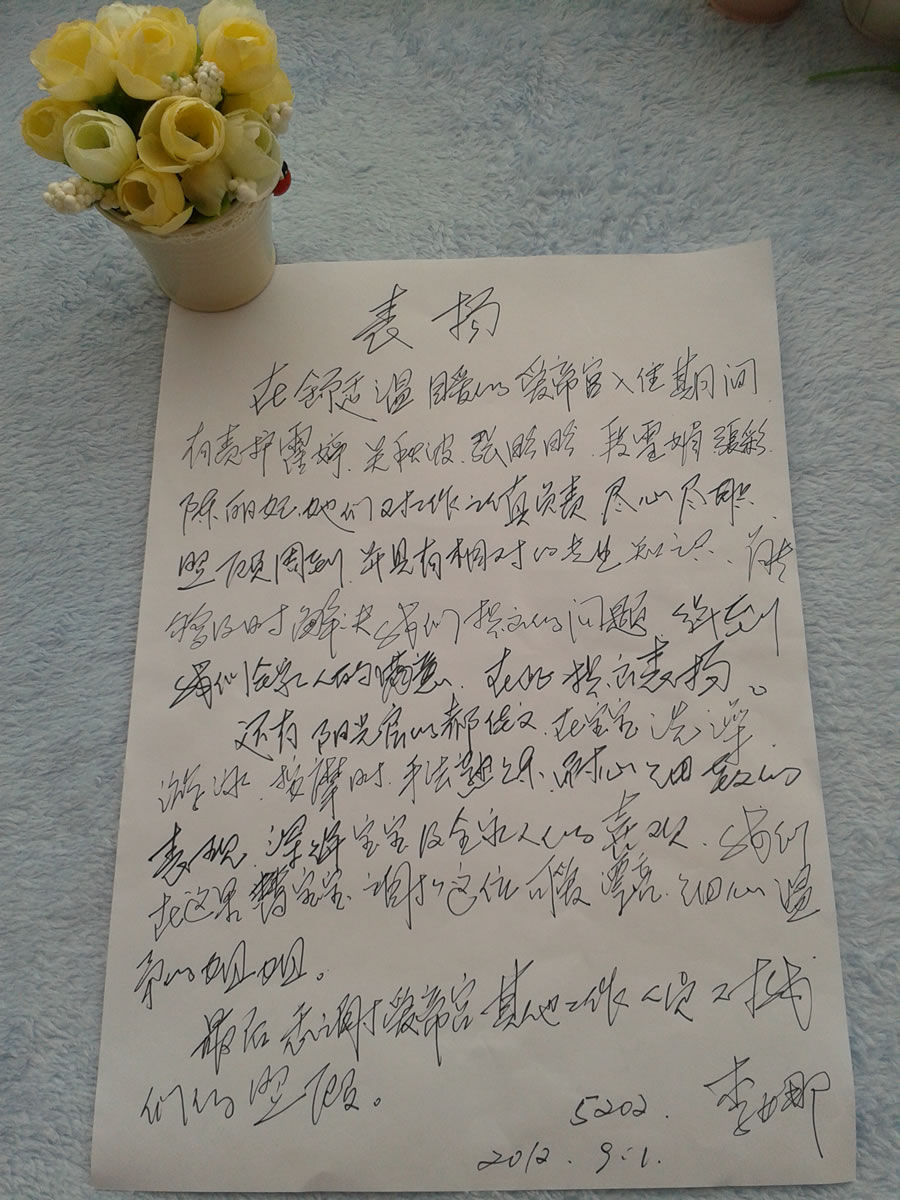 表扬
在舒适温暖的爱帝宫入住期间
有责护 婷.关秋波.张盼盼.段雪娟.張彩.
陈丽 .她们对工作认真负责 尽心尽职.
照顾周到.并具有相对的专业知识.
及时解决我们提出的问题 得到
我们给家人的满意.在此提出表扬。
还有阳光房的郝佳文.在宝宝洗澡.
游泳.按摩时.手法熟练.耐心细致的
表现.深得宝宝及全家人的喜欢.我们
在这里替宝宝谢谢这位可爱漂亮.细心温
柔的姐姐。
最后感谢爱帝宫其他工作人员对我
们的照顾。
5202. 李 娜
2012.9.1.